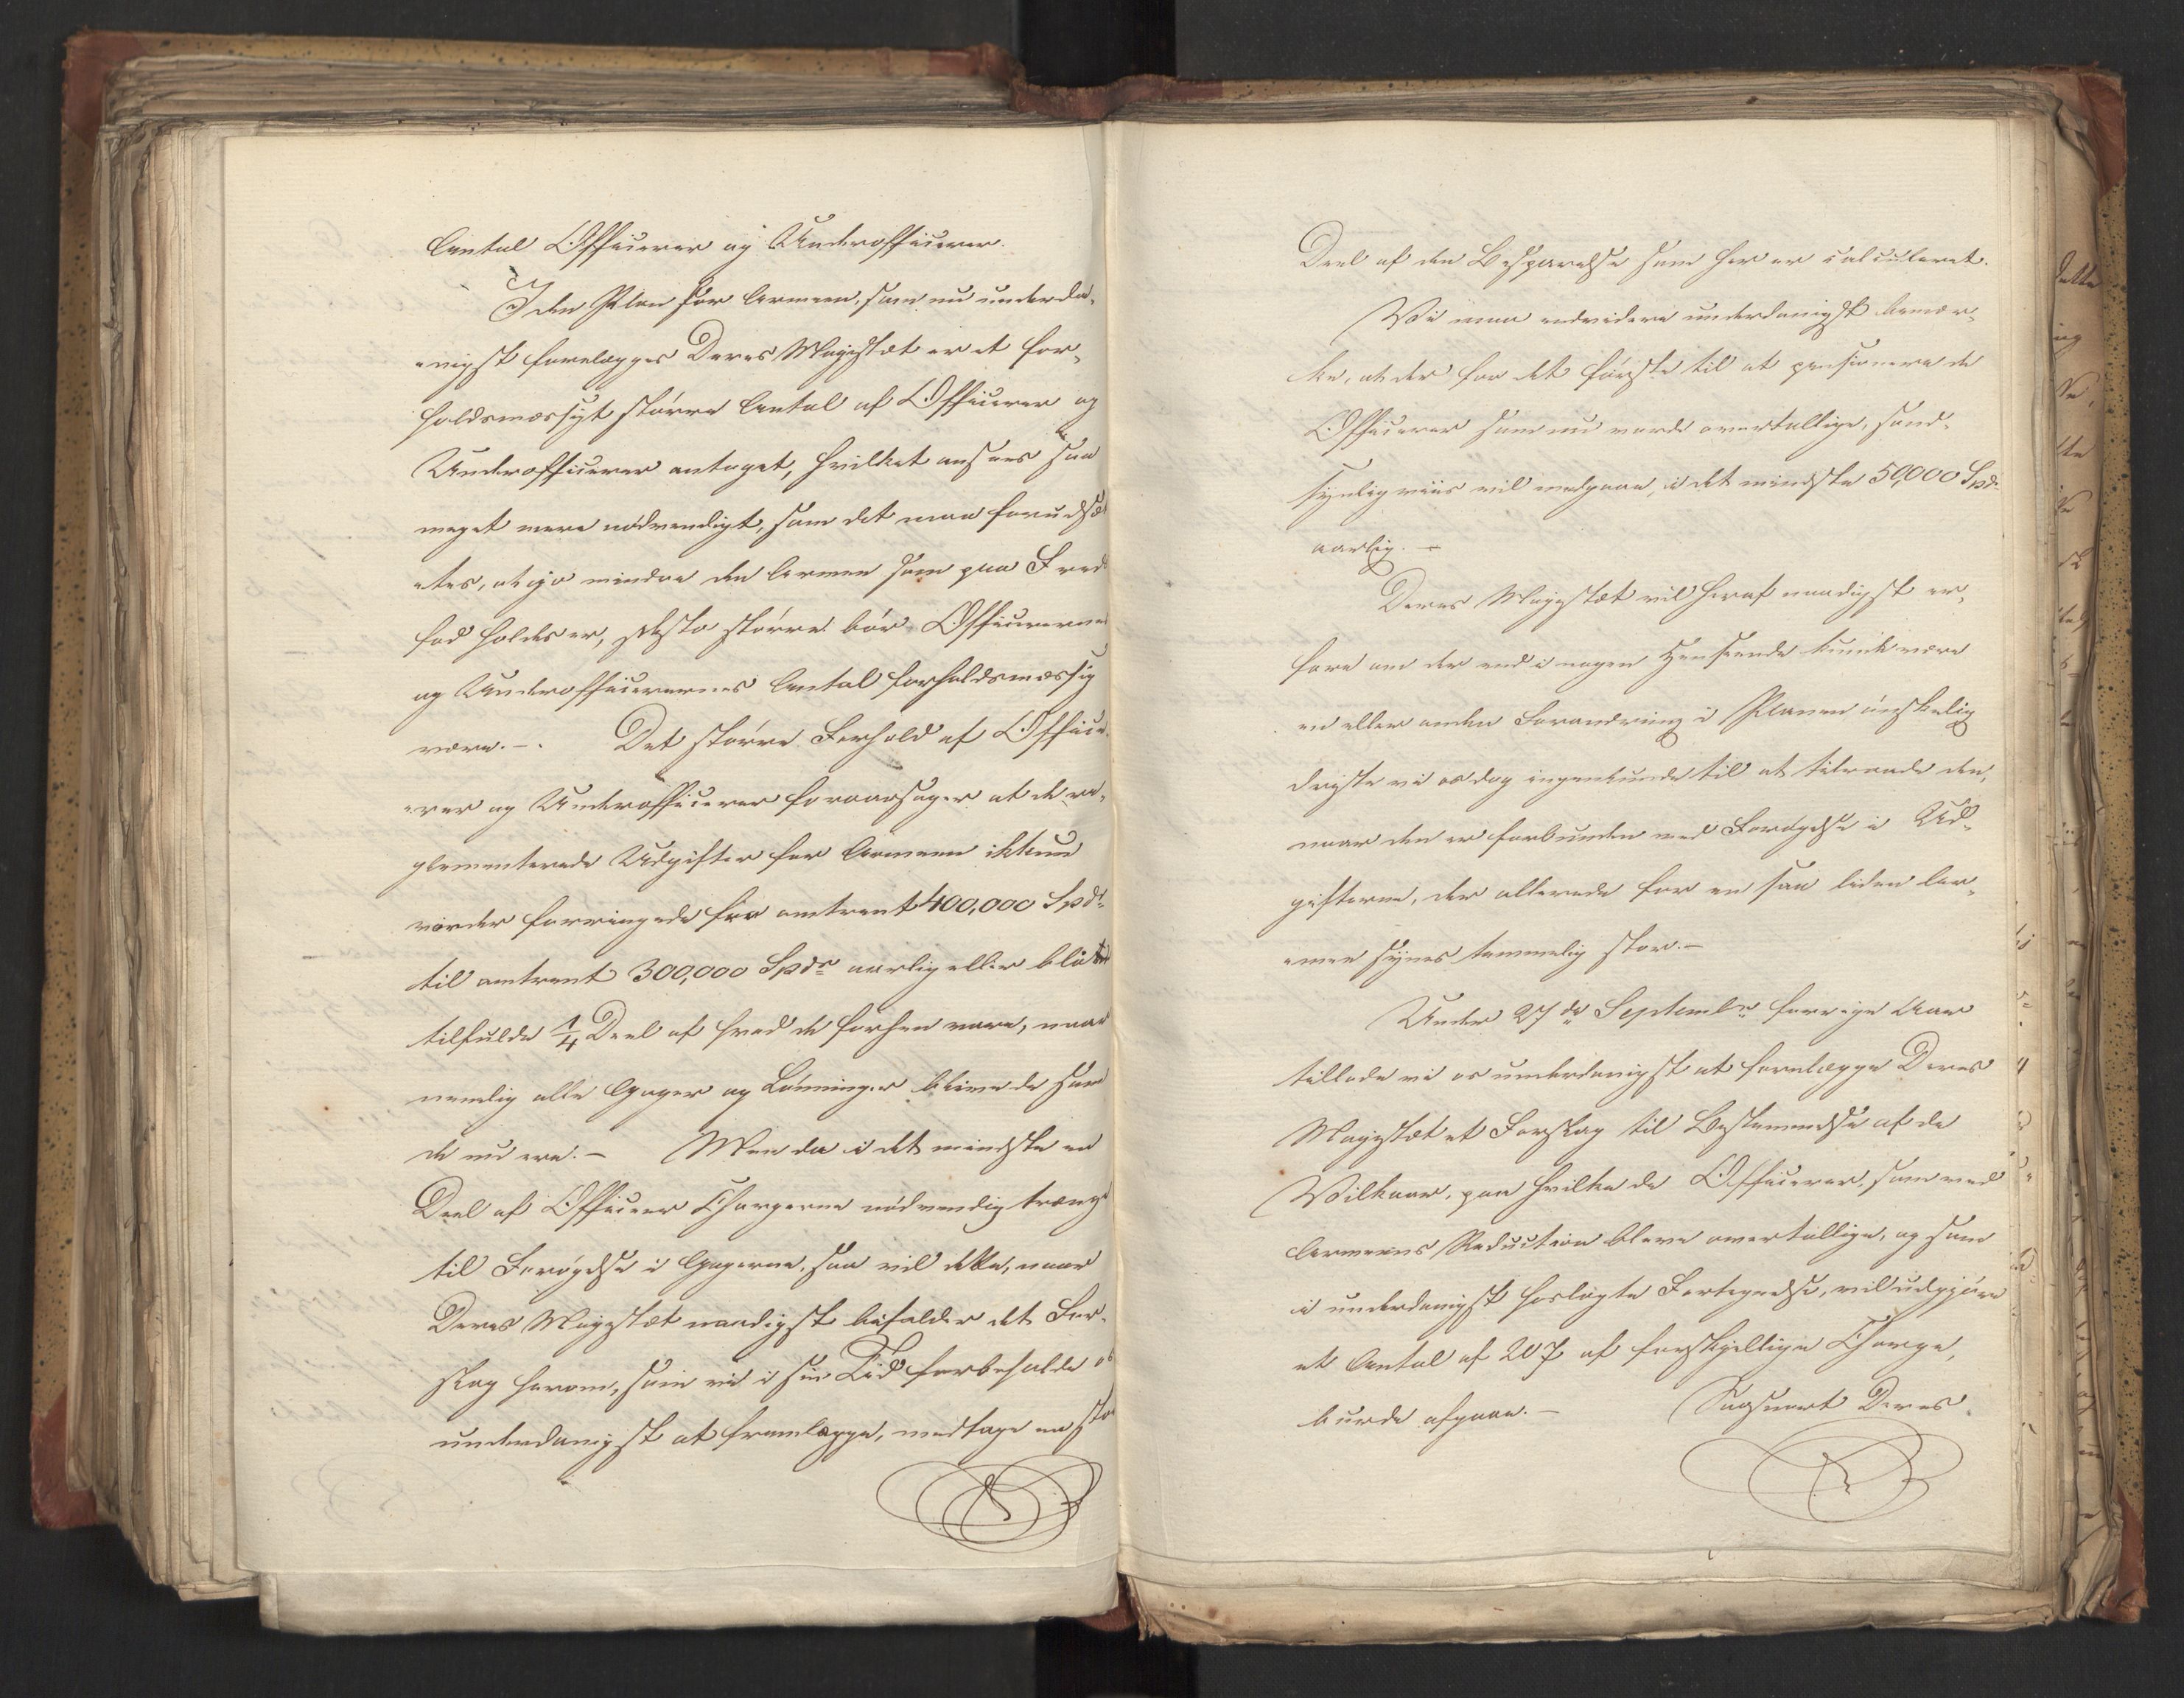 Antal Officierer og Underofficierer.
I den Plan for Armeen, som nu underda-
nigst forelægges Deres Majestæt er et for-
holdsmæssigt større Antal af Officierer og
Underofficierer antaget, hvilket ansees saa
meget mere nødvendigt, som det maa forudsæt-
tes, at jo mindre den Armee som paa Freds
fod holdes er, desto større bør Officierernes
og Underofficierernes Antal forholdsmæssig
være. -. Det større Forhold af Offici-
erer og Underofficierer foraarsager at de re-
glementerede Udgifter for Armeen ikkun
vorder forringede fra omtrent 400,000 Spdr
til omtrent 300,000 Spdr aarlig eller blot
tilfulde 1/4 Deel af hvad de forhen vare, naar
nemlig alle Gager og Lønninger blive de som
de nu ere. - Men da i det mindste en
Deel af Officier Chargerne nødvendig trænge
til Forøgelse i Gagerne, saa vil dette, naar
Deres Majestæt naadigst bifalder det For-
slag herom, som vi i sin Tid forbeholde os
underdanigst at fremlægge, medtage en stor
Deel af den Besparelse som her er calculeret.
Vi maa endvidere underdanigst bemær-
ke, at der for det første til at pensionere de
Officierer som nu vorde overtallige, sand-
synligviis vil medgaae, i det mindste 50,000 Spdr
aarlig. -
Deres Majestæt vil heraf naadigst er-
fare om der end i nogen Henseende kunde være
en eller anden Forandring i Planen ønskelig
driste vi os dog ingenlunde til at tilraade den,
naar den er forbunden med Forøgelse i Ud-
gifterne, der allerede for en saa liden Ar-
mee synes temmelig stor. -
Under 27de Septembr forrige Aar
tillode vi os underdanigst at forelægge Deres
Majestæt et Forslag til Bestemmelse af de
Vilkaar, paa hvilke de Officierer, som ved
Armeens Reduction bleve overtallige, og som
i underdanigst hoslagte Fortegnelse, vil udgjøre
et Antal af 207 af forskjellige Charge,
burde afgaae. - Saasnart Deres